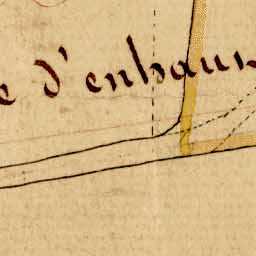 e d'enhaut